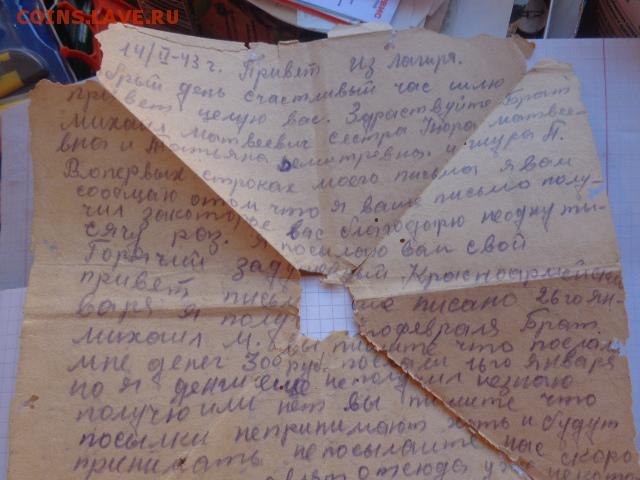 COINS.LAVE.RU
14/II-43 г. Привет из лагиря.
брый день счастливый час шлю
привет целую вас. Здраствуйте Брат
Михаил Матвеевич сестра Нюра матвее-
вна и Татьяна демитревна. и шура П.
Вопервых строках моего письма я вам
сообщаю отом что я ваше письмо полу-
чил закоторое вас благодарю неодну ты-
сячу раз. Я посылаю вам свой
Горячий заду Красноармейский
привет письм писано 26го ян-
варя я полу февраля Брат.
михаил М. вы пишите что послали
мне денег 300 руб. послали 16го января
но я денги ещо неполучил незнаю
получю или нет вы пишите что
посылки непринимают хуть и будут
принимать непосылайте нас скоро
отсюда уже